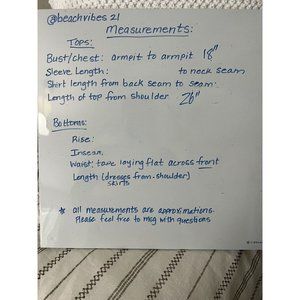 @beachvibes 21
Measurements:
TOPS:
Bust/chest: armpit to armpit 18"
Sleeve Length: to neck seam
Shirt length from back seam to seam:
Length of top from shoulder 26"
Bottoms:
Rise:
Inseam
Waist: tape laying flat across front
Length (dresses from shoulder)
skirts
* all measurements are approximations.
Please feel free to msg with questions